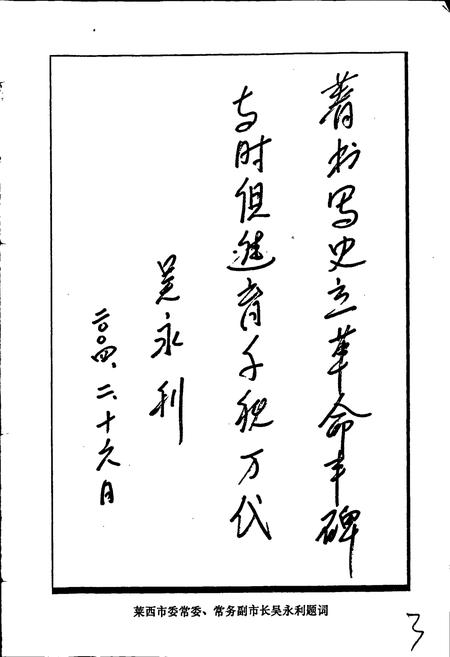 著书写史立革命丰碑
与时俱进育千秋万代
吴永利
二〇〇四、二、十六日
莱西市委常委、常务副市长吴永利题词
3